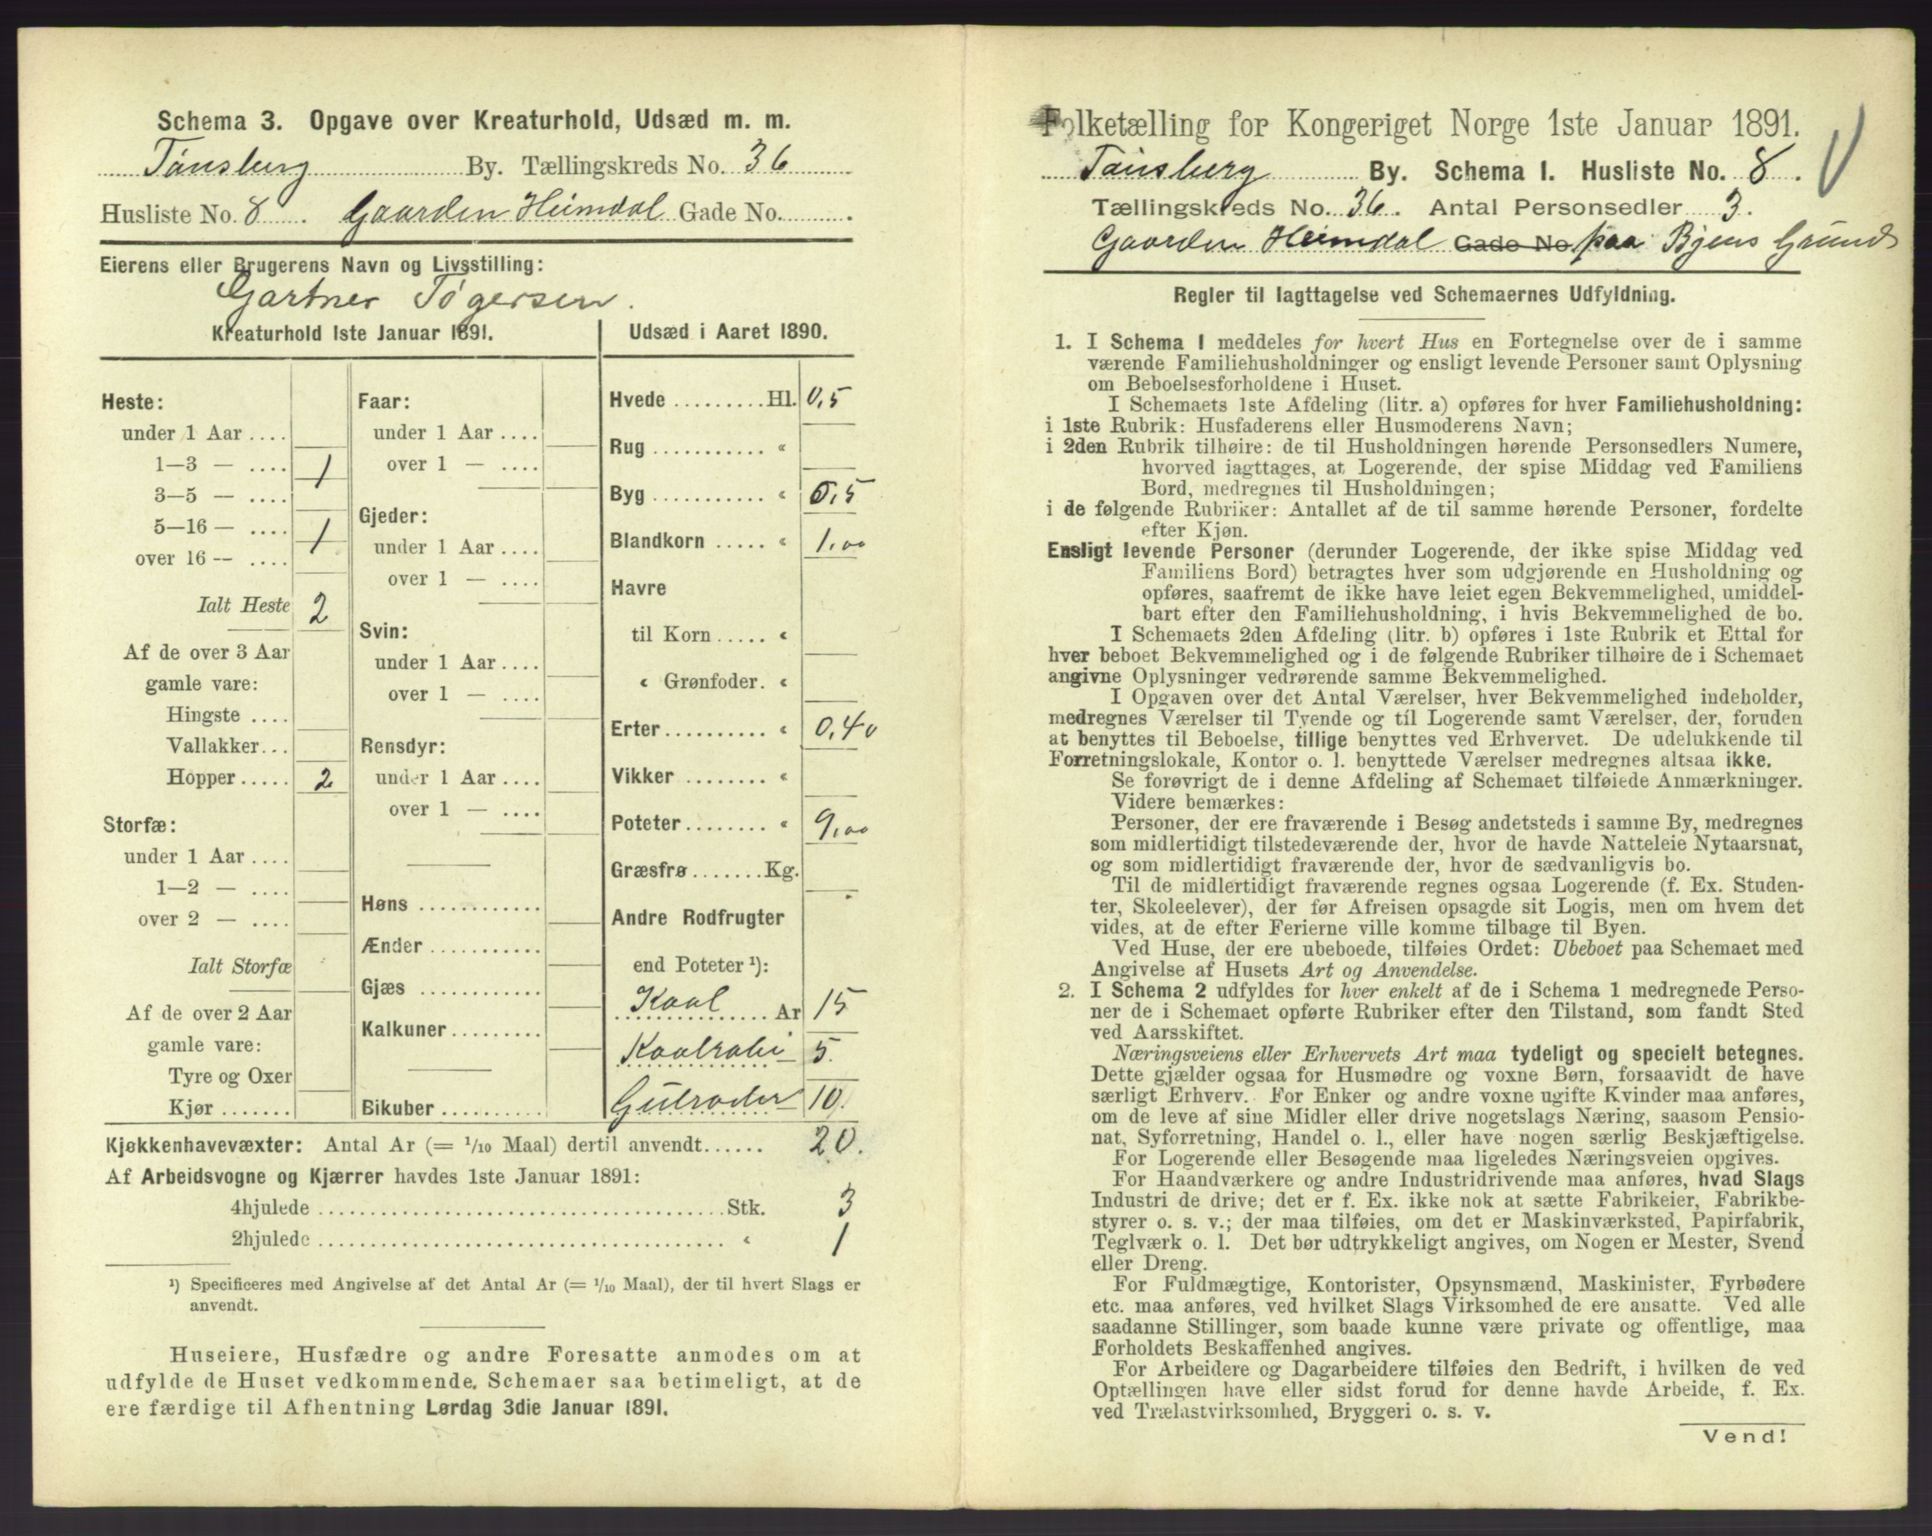 Schema 3. Opgave over Kreaturhold, Udsæd m. m.
Tønsberg By. Tællingskreds No. 36
Husliste No. 8. Gaarden Heimdal Gade No. .
Eierens eller Brugerens Navn og Livsstilling:
Gartner Tøgersen.
Kreaturhold 1ste Januar 1891.
Heste:
under 1 Aar ....
1—3 — .... 1
3—5 — ....
5—16 — .... 1
over 16 — ....
Ialt Heste 2
Af de over 3 Aar
gamle vare:
Hingste ....
Vallakker...
Hopper ..... 2
Storfæ:
under 1 Aar ....
1—2 — ....
over 2 — ....
Ialt Storfæ
Af de over 2 Aar
gamle vare:
Tyre og Oxer
Kjør .......
Faar:
under 1 Aar ....
over 1 — ....
Gjeder:
under 1 Aar ....
over 1 — ....
Svin:
under 1 Aar ....
over 1 — ....
Rensdyr:
under 1 Aar ....
over 1 — ....
Høns ............
Ænder ...........
Gjæs ............
Kalkuner .........
Bikuber ..........
Udsæd i Aaret 1890.
Hvede .........Hl. 0,5
Rug ........... «
Byg ........... « 0,5
Blandkorn ..... « 1,00
Havre
til Korn ..... «
« Grønfoder. «
Erter .......... « 0,40
Vikker ......... «
Poteter ........ « 9,00
Græsfrø .......Kg.
Andre Rodfrugter
end Poteter ¹):
Kaal Ar 15
Kaalrabi 5.
Gulrøder 10.
Kjøkkenhavevæxter: Antal Ar (= 1/10 Maal) dertil anvendt...... 20.
Af Arbeidsvogne og Kjærrer havdes 1ste Januar 1891:
4hjulede ........................................Stk. 3
2hjulede ........................................ « 1
¹) Specificeres med Angivelse af det Antal Ar (= 1/10 Maal), der til hvert Slags er
anvendt.
Huseiere, Husfædre og andre Foresatte anmodes om at
udfylde de Huset vedkommende. Schemaer saa betimeligt, at de
ere færdige til Afhentning Lørdag 3die Januar 1891.
Folketælling for Kongeriget Norge 1ste Januar 1891.
Tønsberg By. Schema I. Husliste No. 8.
Tællingskreds No. 36. Antal Personsedler 3.
Gaarden Heimdal Gade No paa Byens Grund
Regler til Iagttagelse ved Schemaernes Udfyldning.
1. I Schema I meddeles for hvert Hus en Fortegnelse over de i samme
værende Familiehusholdninger og ensligt levende Personer samt Oplysning
om Beboelsesforholdene i Huset.
I Schemaets 1ste Afdeling (litr. a) opføres for hver Familiehusholdning:
i 1ste Rubrik: Husfaderens eller Husmoderens Navn;
i 2den Rubrik tilhøire: de til Husholdningen hørende Personsedlers Numere,
hvorved iagttages, at Logerende, der spise Middag ved Familiens
Bord, medregnes til Husholdningen;
i de følgende Rubriker: Antallet af de til samme hørende Personer, fordelte
efter Kjøn.
Ensligt levende Personer (derunder Logerende, der ikke spise Middag ved
Familiens Bord) betragtes hver som udgjørende en Husholdning og
opføres, saafremt de ikke have leiet egen Bekvemmelighed, umiddel-
bart efter den Familiehusholdning, i hvis Bekvemmelighed de bo.
I Schemaets 2den Afdeling (litr. b) opføres i 1ste Rubrik et Ettal for
hver beboet Bekvemmelighed og i de følgende Rubriker tilhøire de i Schemaet
angivne Oplysninger vedrørende samme Bekvemmelighed.
I Opgaven over det Antal Værelser, hver Bekvemmelighed indeholder,
medregnes Værelser til Tyende og til Logerende samt Værelser, der, foruden
at benyttes til Beboelse, tillige benyttes ved Erhvervet. De udelukkende til
Forretningslokale, Kontor o. l. benyttede Værelser medregnes altsaa ikke.
Se forøvrigt de i denne Afdeling af Schemaet tilføiede Anmærkninger.
Videre bemærkes:
Personer, der ere fraværende i Besøg andetsteds i samme By, medregnes
som midlertidigt tilstedeværende der, hvor de havde Natteleie Nytaarsnat,
og som midlertidigt fraværende der, hvor de sædvanligvis bo.
Til de midlertidigt fraværende regnes ogsaa Logerende (f. Ex. Studen-
ter, Skoleelever), der før Afreisen opsagde sit Logis, men om hvem det
vides, at de efter Ferierne ville komme tilbage til Byen.
Ved Huse, der ere ubeboede, tilføies Ordet: Ubeboet paa Schemaet med
Angivelse af Husets Art og Anvendelse.
2. I Schema 2 udfyldes for hver enkelt af de i Schema 1 medregnede Perso-
ner de i Schemaet opførte Rubriker efter den Tilstand, som fandt Sted
ved Aarsskiftet.
Næringsveiens eller Erhvervets Art maa tydeligt og specielt betegnes.
Dette gjælder ogsaa for Husmødre og voxne Børn, forsaavidt de have
særligt Erhverv. For Enker og andre voxne ugifte Kvinder maa anføres,
om de leve af sine Midler eller drive nogetslags Næring, saasom Pensio-
nat, Syforretning, Handel o. l., eller have nogen særlig Beskjæftigelse.
For Logerende eller Besøgende maa ligeledes Næringsveien opgives.
For Haandværkere og andre Industridrivende maa anføres, hvad Slags
Industri de drive; det er f. Ex. ikke nok at sætte Fabrikeier, Fabrikbe-
styrer o. s. v.; der maa tilføies, om det er Maskinværksted, Papirfabrik,
Teglværk o. l. Det bør udtrykkeligt angives, om Nogen er Mester, Svend
eller Dreng.
For Fuldmægtige, Kontorister, Opsynsmænd, Maskinister, Fyrbødere
etc. maa anføres, ved hvilket Slags Virksomhed de ere ansatte. Ved alle
saadanne Stillinger, som baade kunne være private og offentlige, maa
Forholdets Beskaffenhed angives.
For Arbeidere og Dagarbeidere tilføies den Bedrift, i hvilken de ved
Optællingen have eller sidst forud for denne havde Arbeide, f. Ex.
ved Trælastvirksomhed, Bryggeri o. s. v.
Vend!